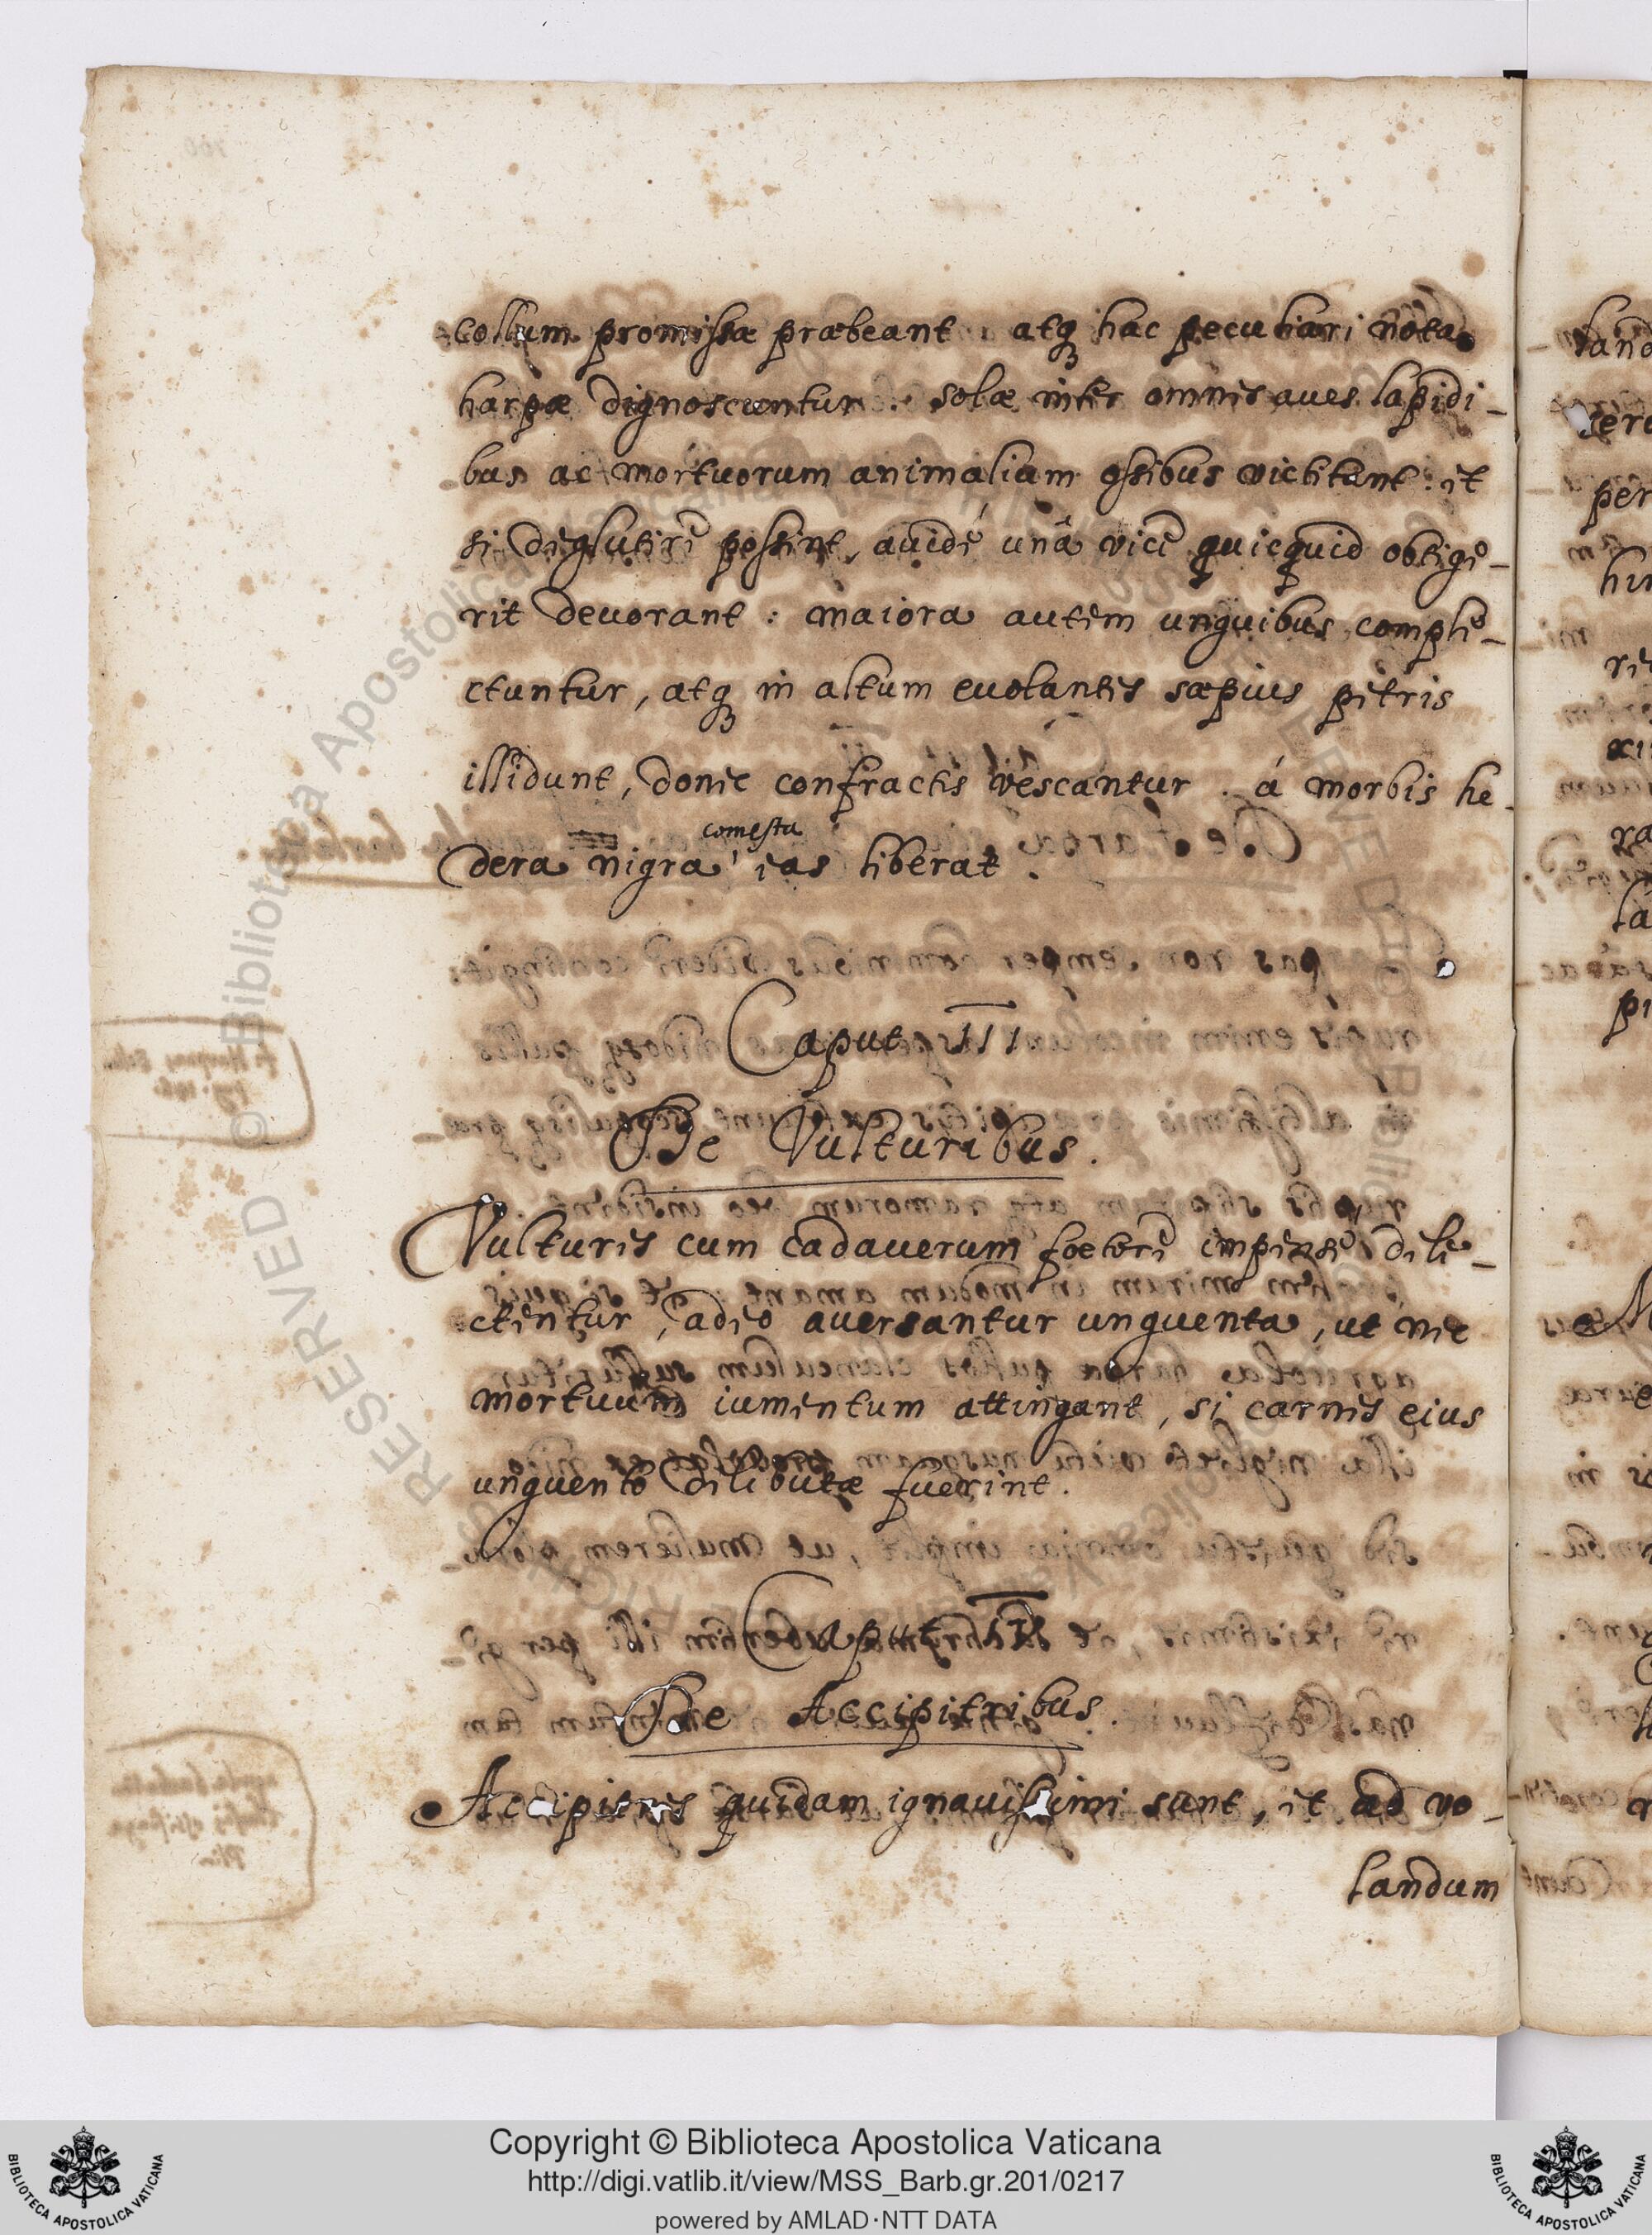 collum promissæ præbeant. atq; hac peculiari nota
harpæ dignoscuntur. solæ inter omnes aues lapidi-
bus ac mortuorum animalium ossibus victitant: et
si deglutiri possint, auidé unâ vice quicquid obtige-
rit deuorant: maiora autem unguibus comple-
ctuntur, atq; in altum euolantes sæpius petris
illidunt, donec confractis vescantur. á morbis he-
comesta
dera nigra eas liberat.
Caput III
De Vulturibus.
Vultures cum cadauerum foetore impensè dele-
ctentur, adeo auersantur unguenta, ut nec
mortuum iumentum attingant, si carnes eius
unguento delibutæ fuerint.
Caput
De Accipitribus.
Accipitres quidam ignauissimi sunt, et ad vo-
landum
Copyright © Biblioteca Apostolica Vaticana
http://digi.vatlib.it/view/MSS_Barb.gr.201/0217
powered by AMLAD·NTT DATA
BIBLIOTECA APOSTOLICA VATICANA
BIBLIOTECA APOSTOLICA VATICANA